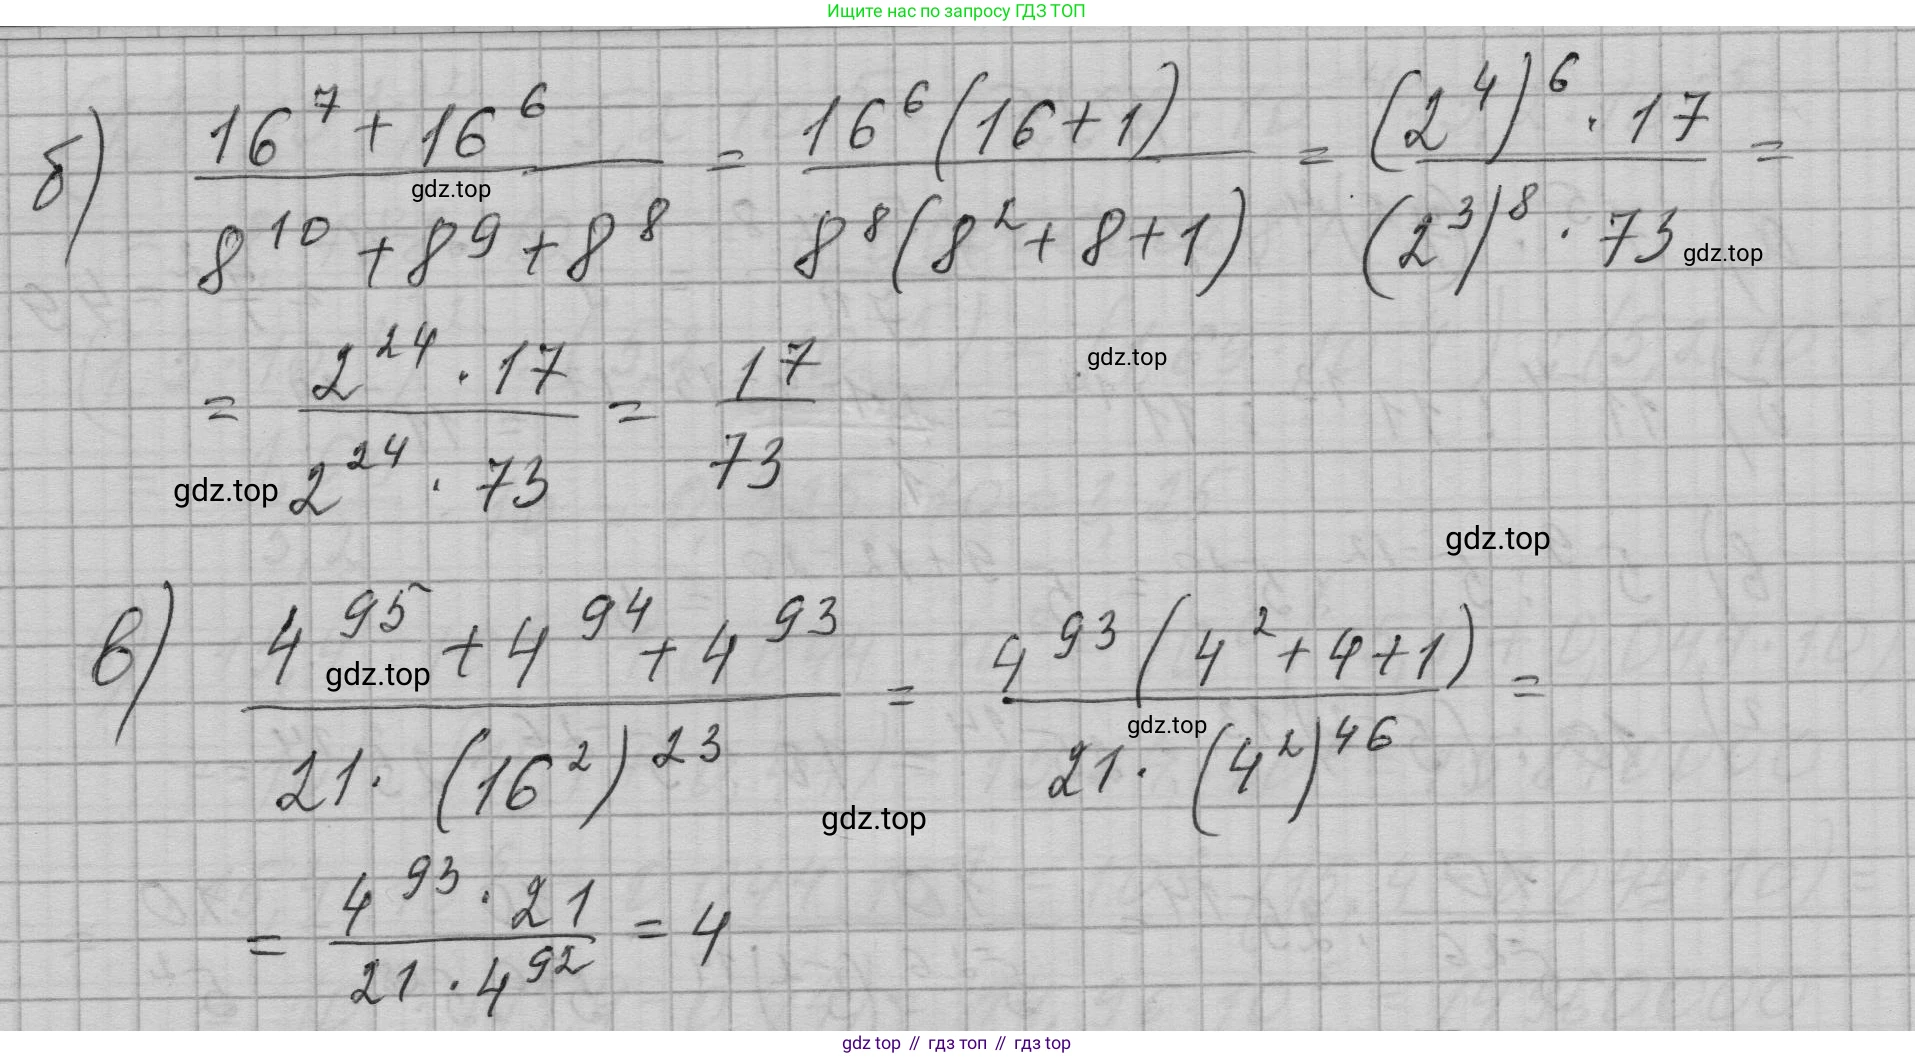 Ищите нас по запросу ГДЗ ТОП
б) (16^7 + 16^6)/(8^10 + 8^9 + 8^8) = (16^6(16+1))/(8^8(8^2+8+1)) = ((2^4)^6 · 17)/((2^3)^8 · 73) =
gdz.top
gdz.top
= (2^24 · 17)/(2^24 · 73) = 17/73
gdz.top
gdz.top
gdz.top
в) (4^95 + 4^94 + 4^93)/(21 · (16^2)^23) = (4^93(4^2+4+1))/(21 · (4^2)^46) =
gdz.top
gdz.top
gdz.top
= (4^93 · 21)/(21 · 4^92) = 4
gdz top // гдз топ // гдз top